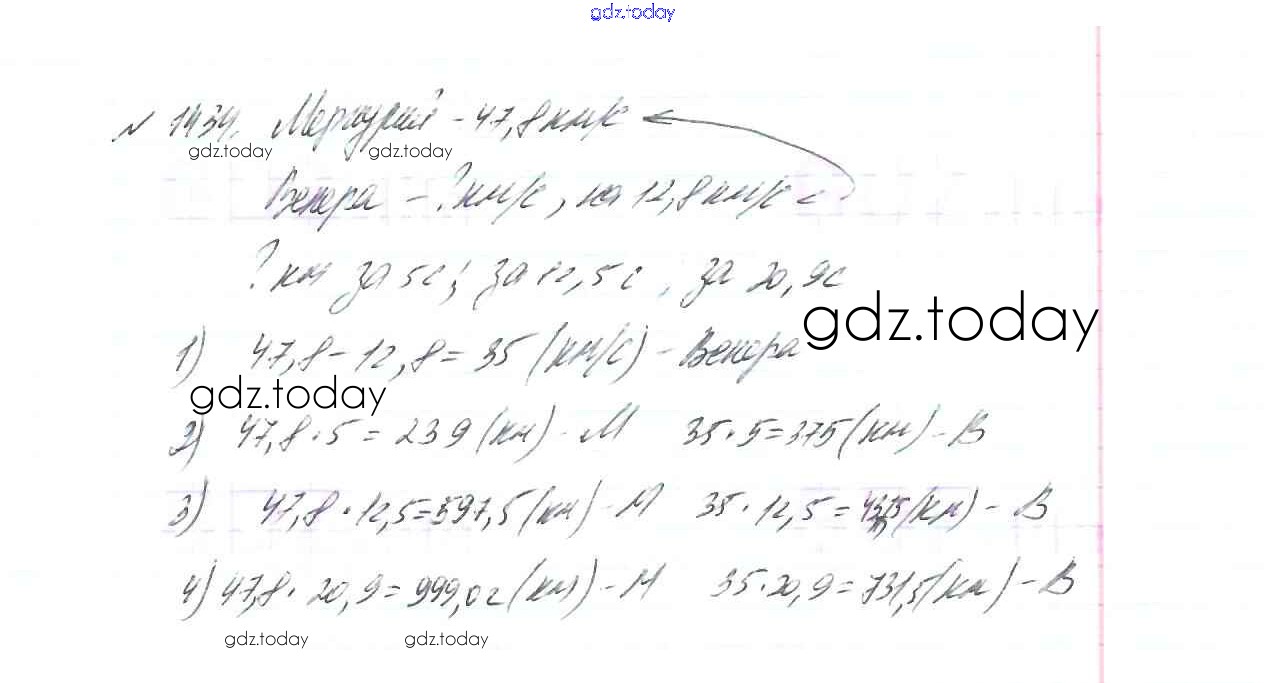 gdz.today
№ 1434. Меркурий - 47,8 км/с
gdz.today gdz.today
Венера - ? км/с, на 12,8 км/с <
? км за 5с; за 12,5с, за 20,9с
gdz.today
1) 47,8 - 12,8 = 35 (км/с) - Венера
gdz.today
2) 47,8 · 5 = 239 (км) - М 35 · 5 = 375 (км) - В
3) 47,8 · 12,5 = 597,5 (км) - М 35 · 12,5 = 437,5 (км) - В
4) 47,8 · 20,9 = 999,02 (км) - М 35 · 20,9 = 731,5 (км) - В
gdz.today gdz.today